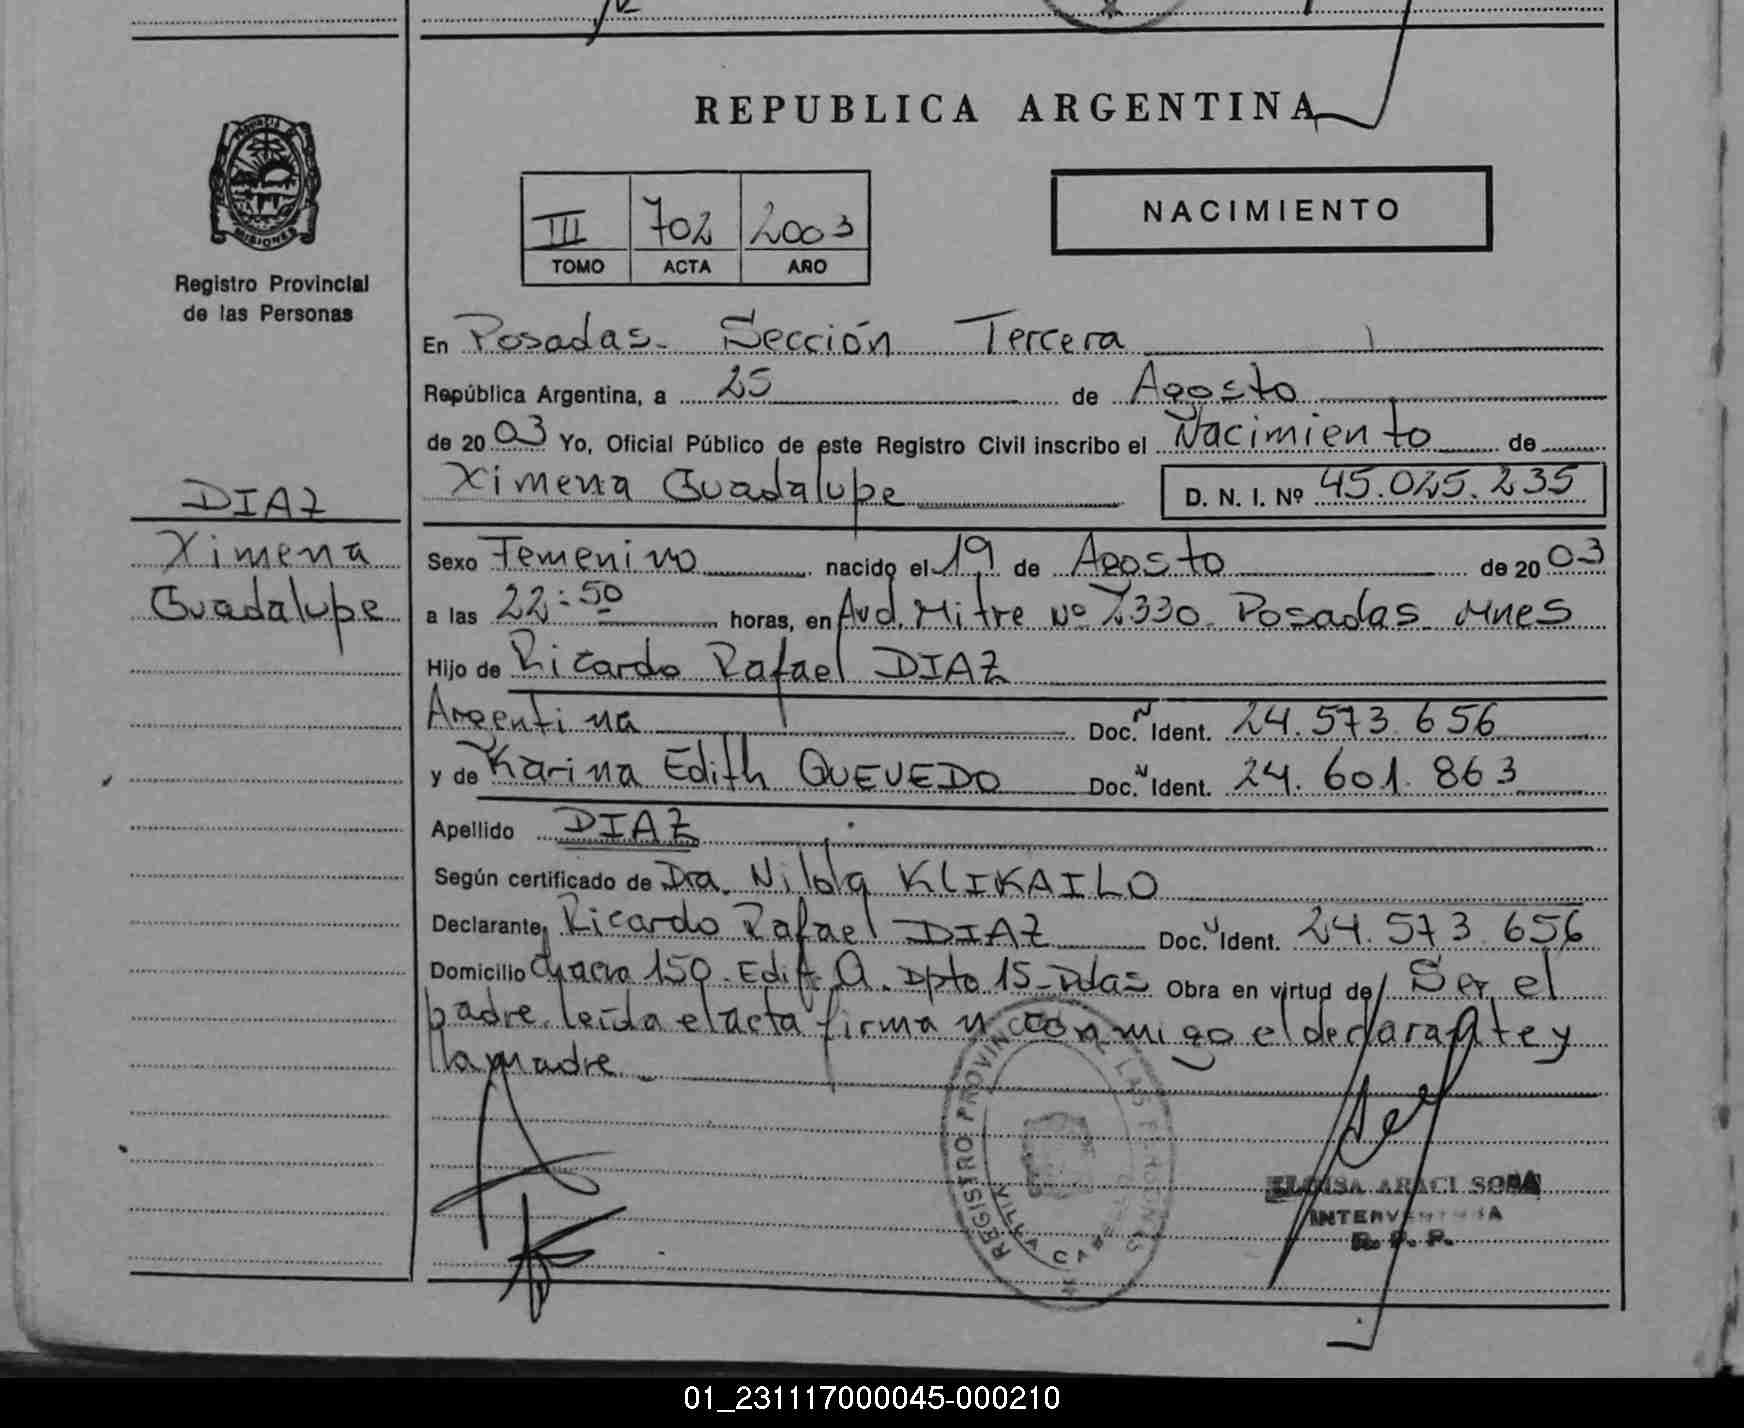 REPUBLICA ARGENTINA
MISIONES
Registro Provincial
de las Personas
III 702 2003
TOMO ACTA AÑO
NACIMIENTO
En Posadas- Sección Tercera
República Argentina, a 25 de Agosto
de 2003 Yo, Oficial Público de este Registro Civil inscribo el Nacimiento de
Ximena Guadalupe D. N. I. Nº 45.025.235
DIAZ
Ximena
Guadalupe
Sexo Femenino nacido el 19 de Agosto de 2003
a las 22:50 horas, en Avd. Mitre Nº 2330- Posadas- Mnes
Hijo de Ricardo Rafael DIAZ
Argentina Doc. N Ident. 24.573.656
y de Karina Edith QUEVEDO Doc. N Ident. 24.601.863
Apellido DIAZ
Según certificado de Dra. Nilda KLIKAILO
Declarante, Ricardo Rafael DIAZ Doc. Ident. 24.573.656
Domicilio Chacra 150. Edif. Q. Dpto 15- Pdas Obra en virtud de Ser el
padre. leída el acta firman conmigo el declarante y
la madre
REGISTRO PROVINCIAL DE LAS PERSONAS
VILLA CABELLO
ELOISA ARACI SOSA
INTERVENTORA
R. P. P.
01_231117000045-000210